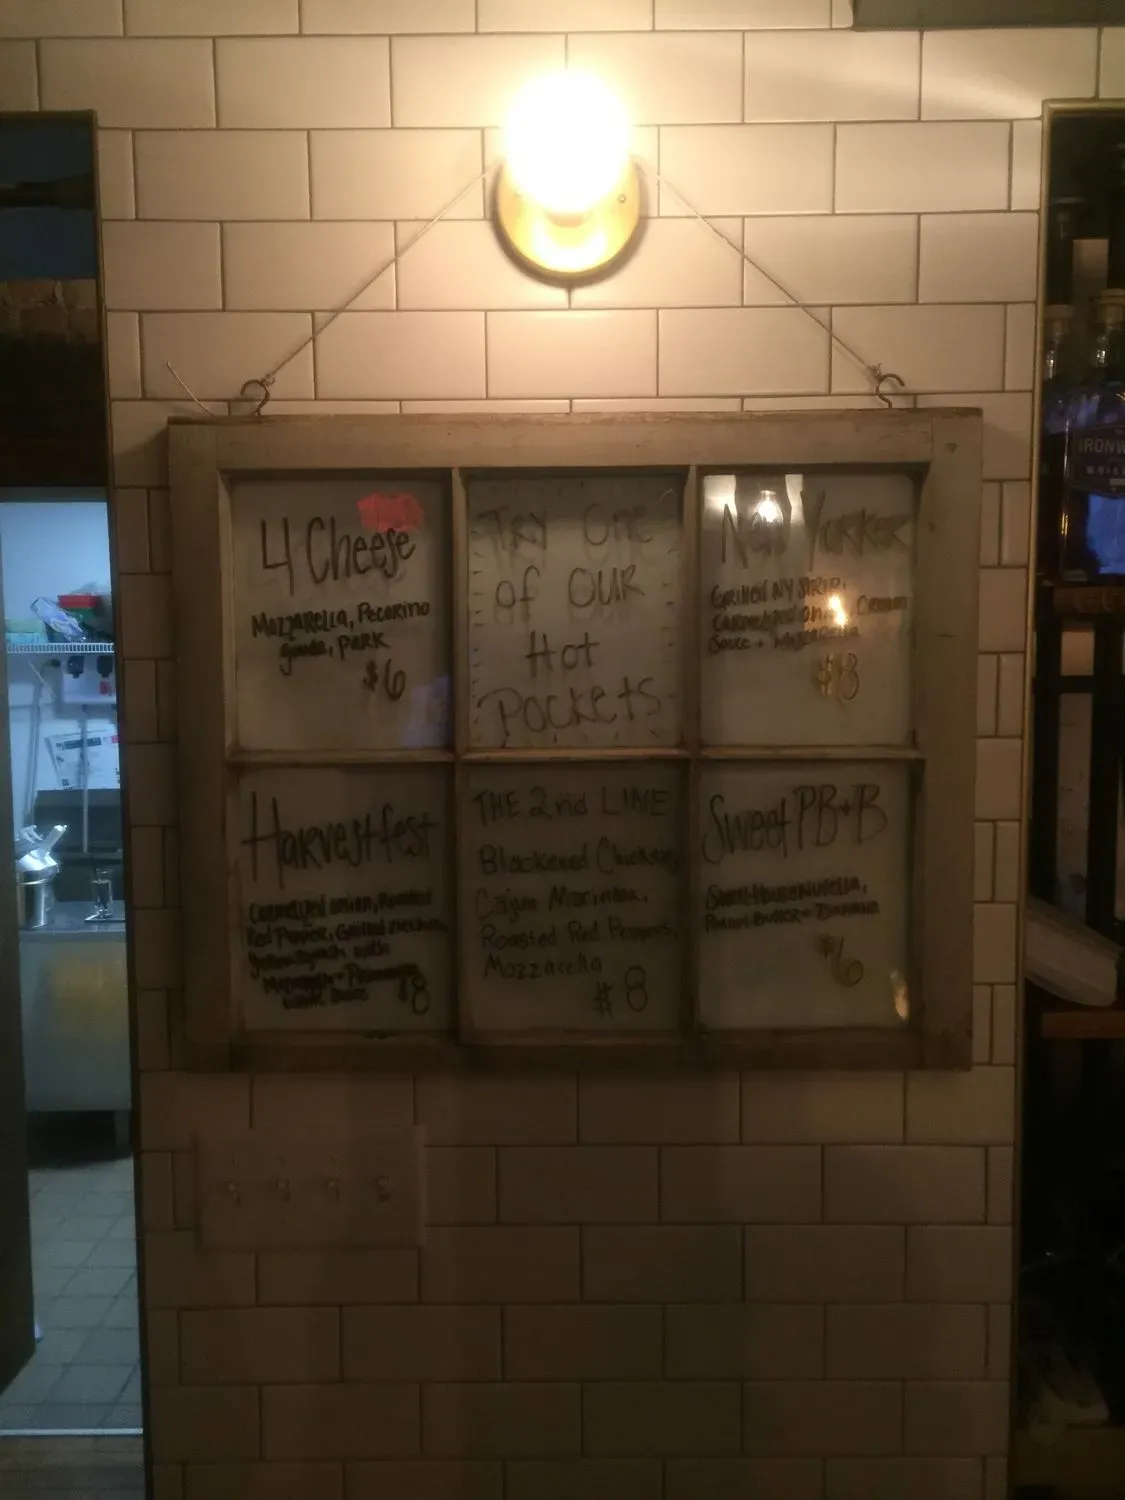 4 Cheese
Mozzarella, Pecorino
gouda, Park
$6
Try One
of Our
Hot
Pockets
New Yorker
Grilled NY Strip,
Sauce + Mozzarella
Harvestfest
Caramelized onion, Roasted
Red Pepper, Grilled zucchini,
with
$8
THE 2nd LINE
Blackened Chicken,
Cajun Marinara,
Roasted Red Peppers,
Mozzarella
$8
Sweet PB+B
Nutella,
Peanut Butter + Banana
$6
IRONW
WHIS